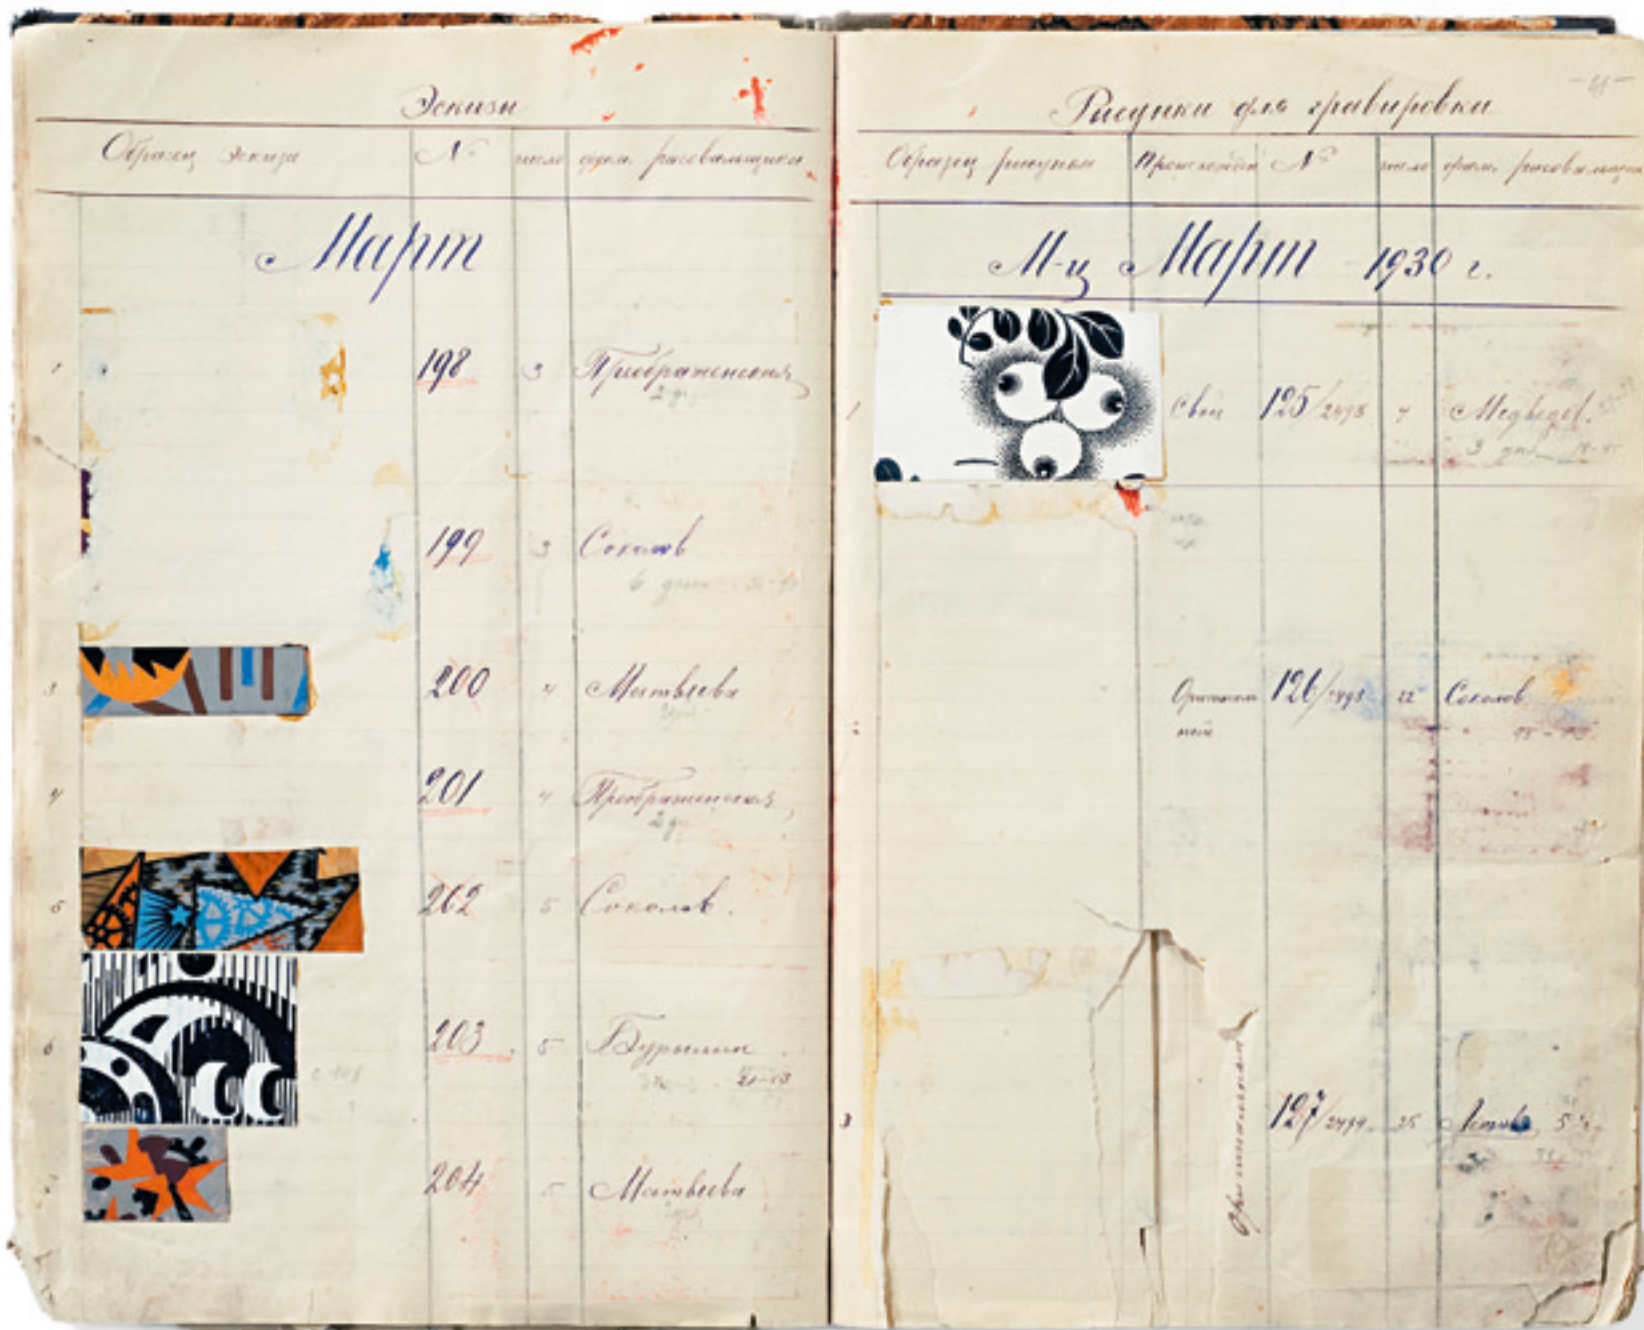 Эскизы
Образец эскиза № число фам. рисовальщика
Март
1 198 3 Преображенская
2 д.
199 3 Соколов
6 дней
3 200 4 Матвеева
4 201 4 Преображенская
2 д.
5 202 5 Соколов.
6 203. 5 Бурылин
21-13
204 5 Матвеева
Рисунки для гравировки
Образец рисунка Происхождение № число фам. рисовальщика
М-ц Март 1930 г.
1 Свой 125/2493 4 Медведев.
3 дня
Оригиналь 126/2493 22 Соколов
ный
3 Оригинальный 127/2494 25